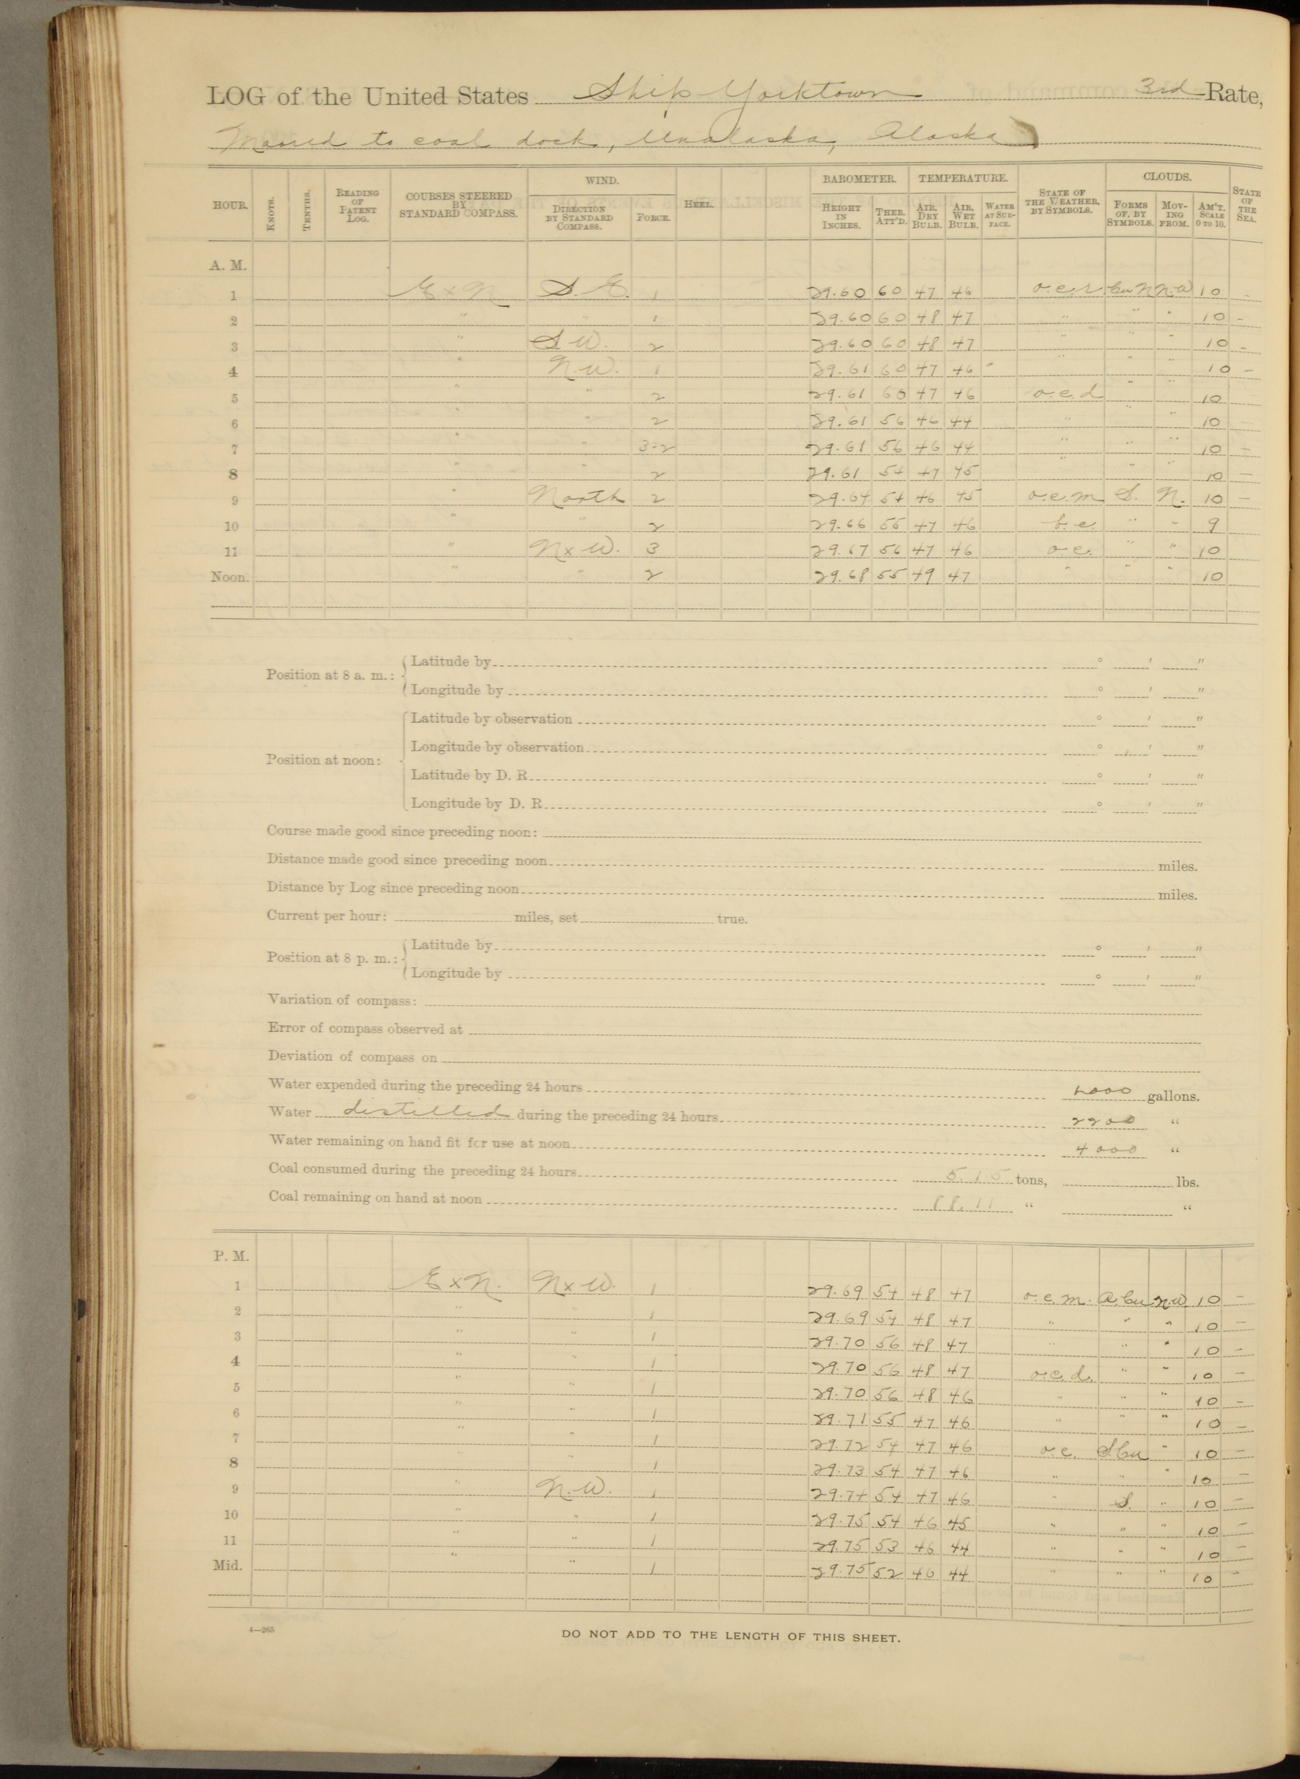 LOG of the United States Ship Yorktown 3rd Rate,
Moored to coal dock, Unalaska, Alaska
WIND. BAROMETER. TEMPERATURE. CLOUDS.
HOUR. KNOTS. TENTHS. READING OF PATENT LOG. COURSES STEERED BY STANDARD COMPASS. DIRECTION BY STANDARD COMPASS. FORCE. HEEL. HEIGHT IN INCHES. THER. ATT'D. AIR, DRY BULB. AIR, WET BULB. WATER AT SURFACE. STATE OF THE WEATHER, BY SYMBOLS. FORMS OF, BY SYMBOLS. MOVING FROM. AM'T. SCALE 0 TO 10. STATE OF THE SEA.
A. M.
1 ExN S. E. 1 29.60 60 47 46 o.c.r. Cu N N.W 10 -
2 " " 1 29.60 60 48 47 " " " 10 -
3 " S.W. 2 29.60 60 48 47 " " " 10 -
4 " N.W. 1 29.61 60 47 46 " " " " 10 -
5 " " 2 29.61 60 47 46 o.c.d " " 10
6 " " 2 29.61 56 46 44 " " " 10 -
7 " " 3-2 29.61 56 46 44 " " " 10 -
8 " " 2 29.61 54 47 45 " " " 10 -
9 " North 2 29.64 54 46 45 o.c.m S. N. 10 -
10 " " 2 29.66 55 47 46 b.c. " " 9
11 " NxW. 3 29.67 56 47 46 o.c. " " 10
Noon. " " 2 29.68 55 49 47 " " " 10
Position at 8 a. m.: Latitude by ° ′ ″
Longitude by ° ′ ″
Position at noon: Latitude by observation ° ′ ″
Longitude by observation ° ′ ″
Latitude by D. R. ° ′ ″
Longitude by D. R. ° ′ ″
Course made good since preceding noon:
Distance made good since preceding noon miles.
Distance by Log since preceding noon miles.
Current per hour: miles, set true.
Position at 8 p. m.: Latitude by ° ′ ″
Longitude by ° ′ ″
Variation of compass:
Error of compass observed at
Deviation of compass on
Water expended during the preceding 24 hours gallons.
Water distilled during the preceding 24 hours 2200 "
Water remaining on hand fit for use at noon 4000 "
Coal consumed during the preceding 24 hours 5.15 tons, lbs.
Coal remaining on hand at noon 88.11 " "
P. M.
1 ExN. NxW. 1 29.69 54 48 47 o.c.m. A.Cu N.W 10 -
2 " " 1 29.69 54 48 47 " " " 10 -
3 " " 1 29.70 56 48 47 " " " 10 -
4 " " 1 29.70 56 48 47 o.c.d. " " 10 -
5 " " 1 29.70 56 48 46 " " " 10 -
6 " " 1 29.71 55 47 46 " " " 10 -
7 " " 1 29.72 54 47 46 o.c. S.Cu " 10 -
8 " " 1 29.73 54 47 46 " " " 10 -
9 " N.W. 1 29.74 54 47 46 " S. " 10 -
10 " " 1 29.75 54 46 45 " " " 10 -
11 " " 1 29.75 53 46 44 " " " 10 -
Mid. " " 1 29.75 52 46 44 " " " 10 "
4—265
DO NOT ADD TO THE LENGTH OF THIS SHEET.